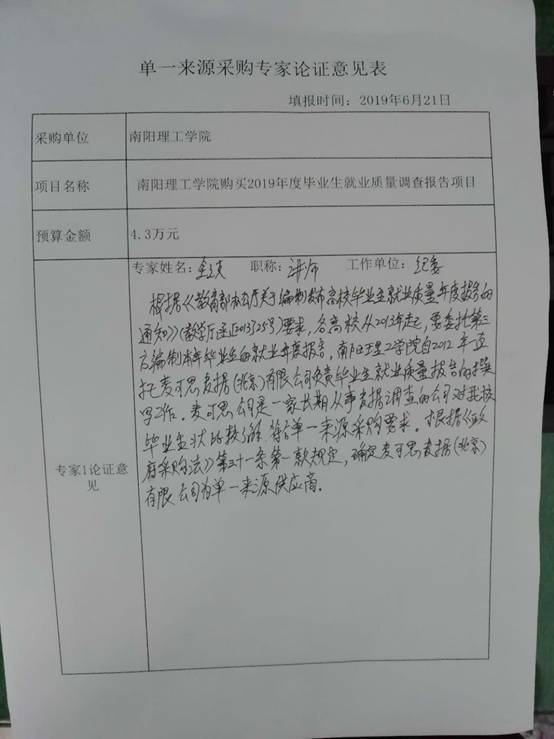 单一来源采购专家论证意见表
填报时间：2019年6月21日
采购单位 南阳理工学院
项目名称 南阳理工学院购买2019年度毕业生就业质量调查报告项目
预算金额 4.3万元
专家姓名： 职称：讲师 工作单位：纪委
根据《教育部办公厅关于编制发布高校毕业生就业质量年度报告的
通知》(教学厅函[2013]25号)要求，各高校从2013年起，要委托第三
方编制本年毕业生的就业年度报告，南阳理工学院自2012年一直
托麦可思数据(北京)有限公司负责毕业生就业质量报告的撰
写工作。麦可思公司是一家长期从事数据调查的公司对我校
毕业生状况比较了解 符合单一来源采购要求。根据《政
府采购法》第三十一条第一款规定，确定麦可思数据(北京)
有限公司为单一来源供应商。
专家1论证意
见